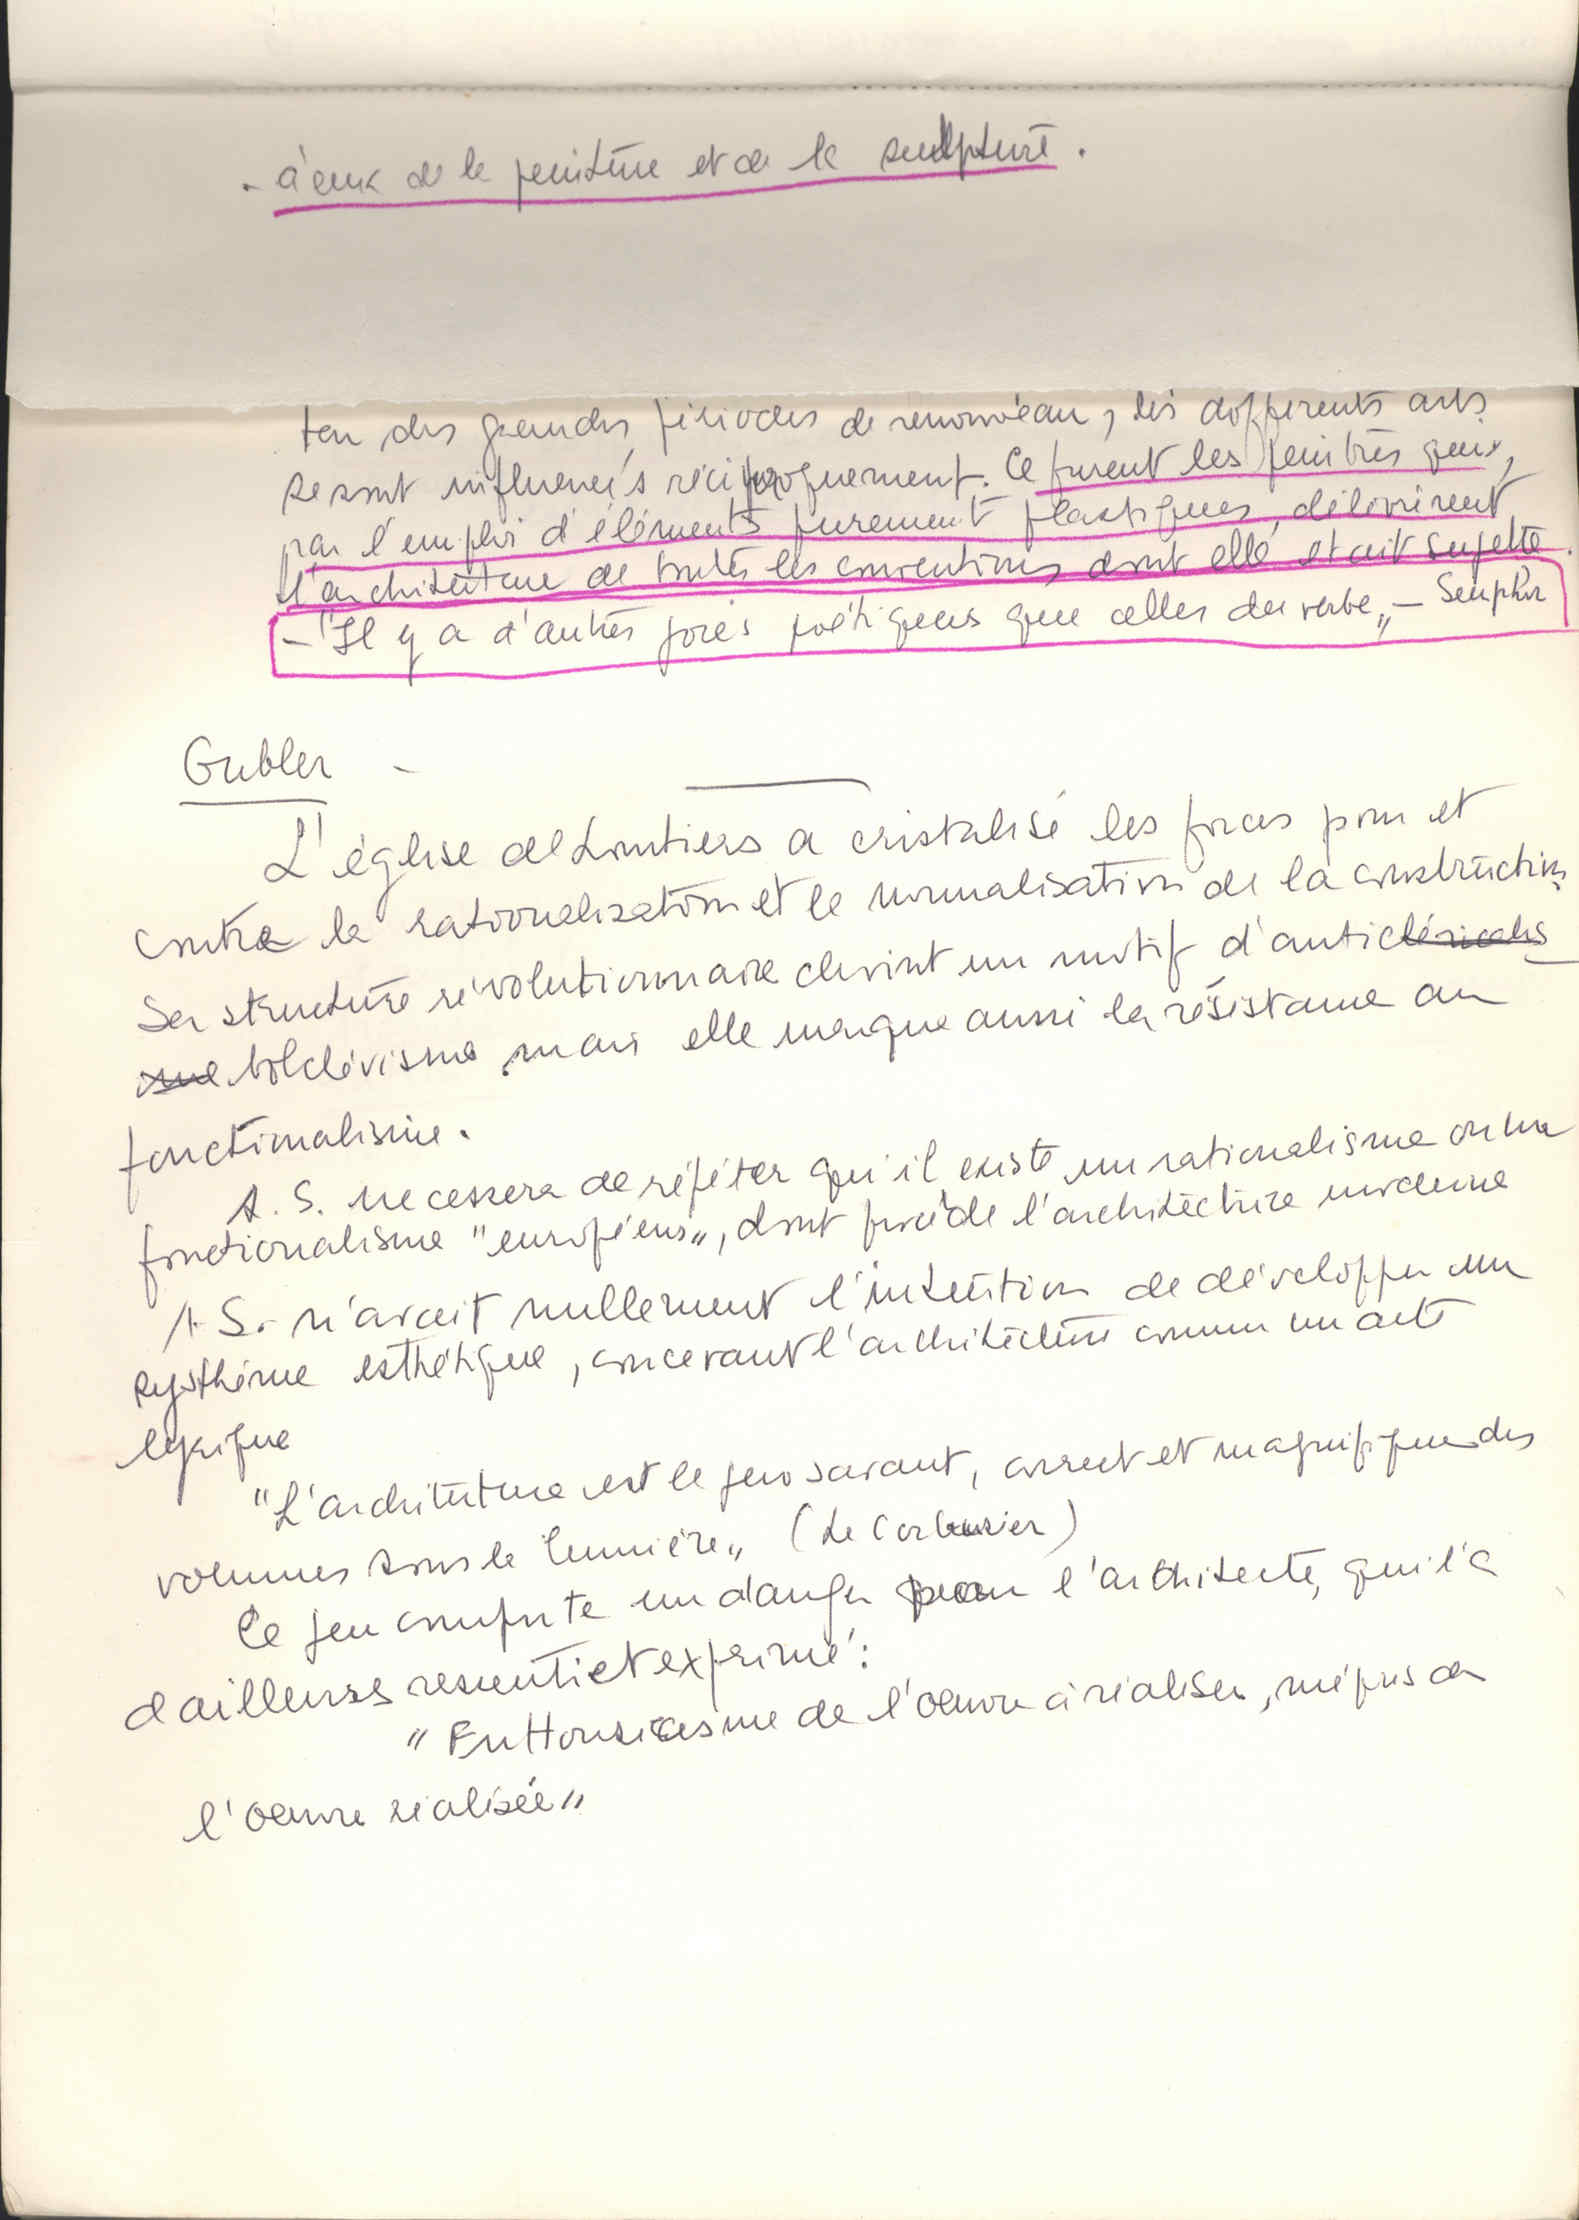 - à ceux de la peinture et de la sculpture.
des grandes périodes de renouveau, les différents arts
se sont influencés réciproquement. Ce furent les peintres qui,
par l'emploi d'éléments purement plastiques, délivrèrent
l'architecture de toutes les conventions dont elle était sujette.
- "Il y a d'autres joies poétiques que celles du verbe„ - Seuphor
Gubler -
L'église de Lourtiers a cristalisé les forces pour et
contre la rationalisation et la normalisation de la construction.
Sa structure révolutionnaire devint un motif d'anticléricalis
me bolchévisme, mais elle marque aussi la résistance au
fonctionalisme.
A. S. ne cessera de répéter qu'il existe un rationalisme ou un
fonctionalisme "européens„, dont procède l'architecture moderne
A. S. n'avait nullement l'intention de développer un
système esthétique, concevant l'architecture comme un acte
lyrique
"L'architecture est le jeu savant, correct et magnifique des
volumes sous la lumière„ (Le Corbusier)
Ce jeu comporte un danger pour l'architecte, qui l'a
d'ailleurs resenti et exprimé:
"Enthousiasme de l'oeuvre à réaliser, mépris de
l'oeuvre réalisée„